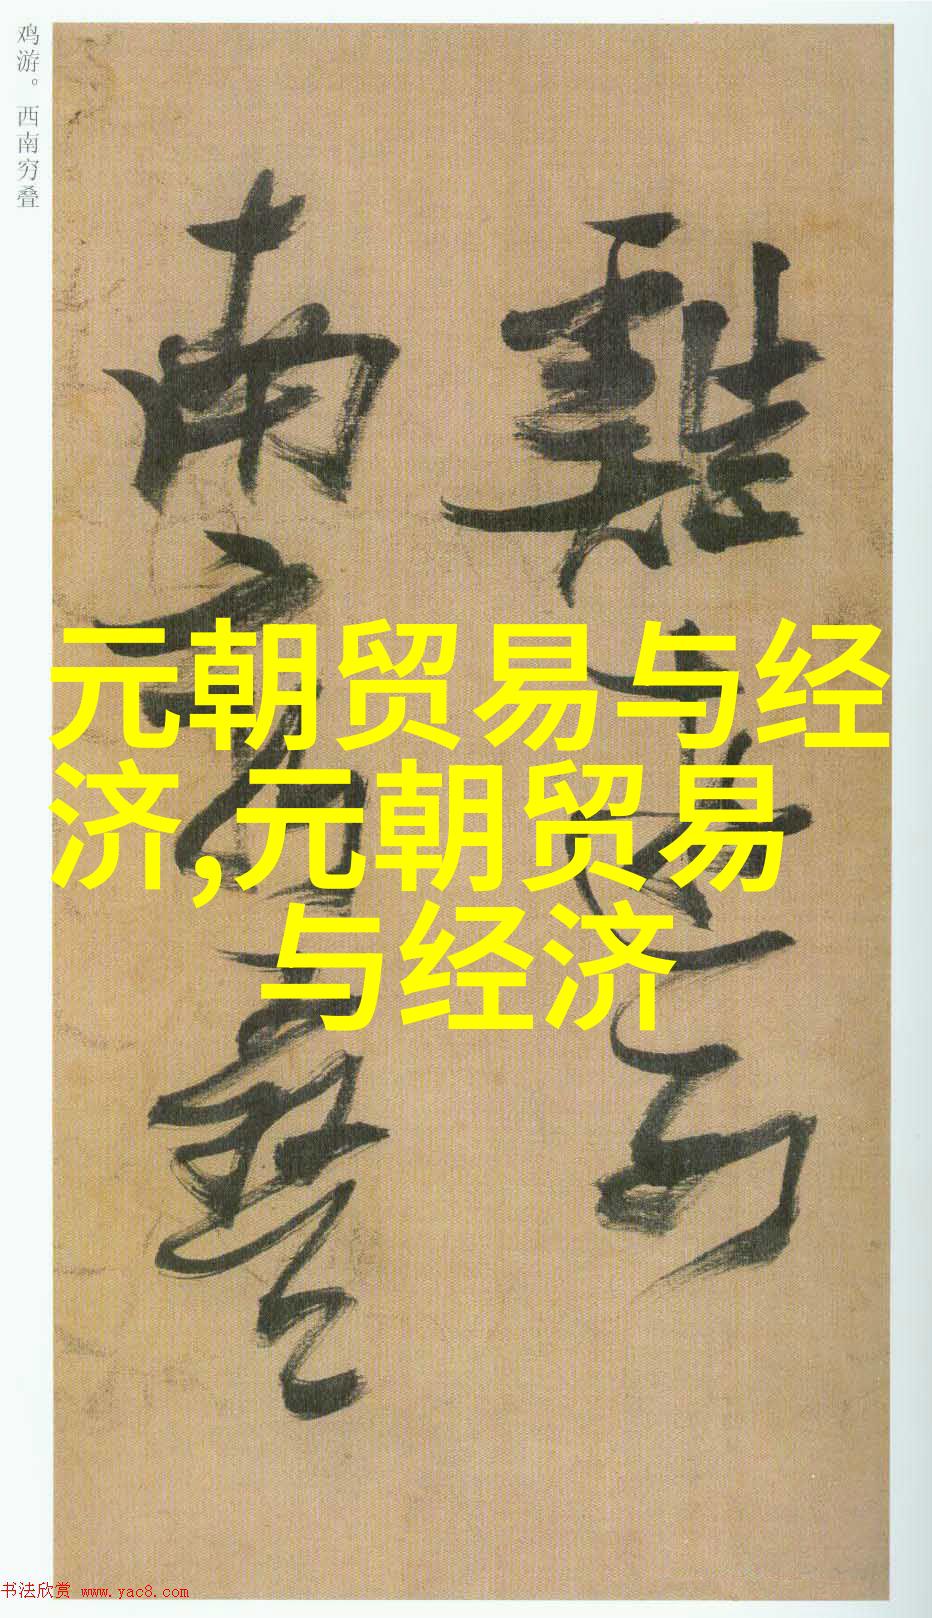 鸡游。西南穷叠
雞遊西
南窮疊
元朝贸易与经
济,元朝贸易
与经济
书法欣赏 www.yac8.com